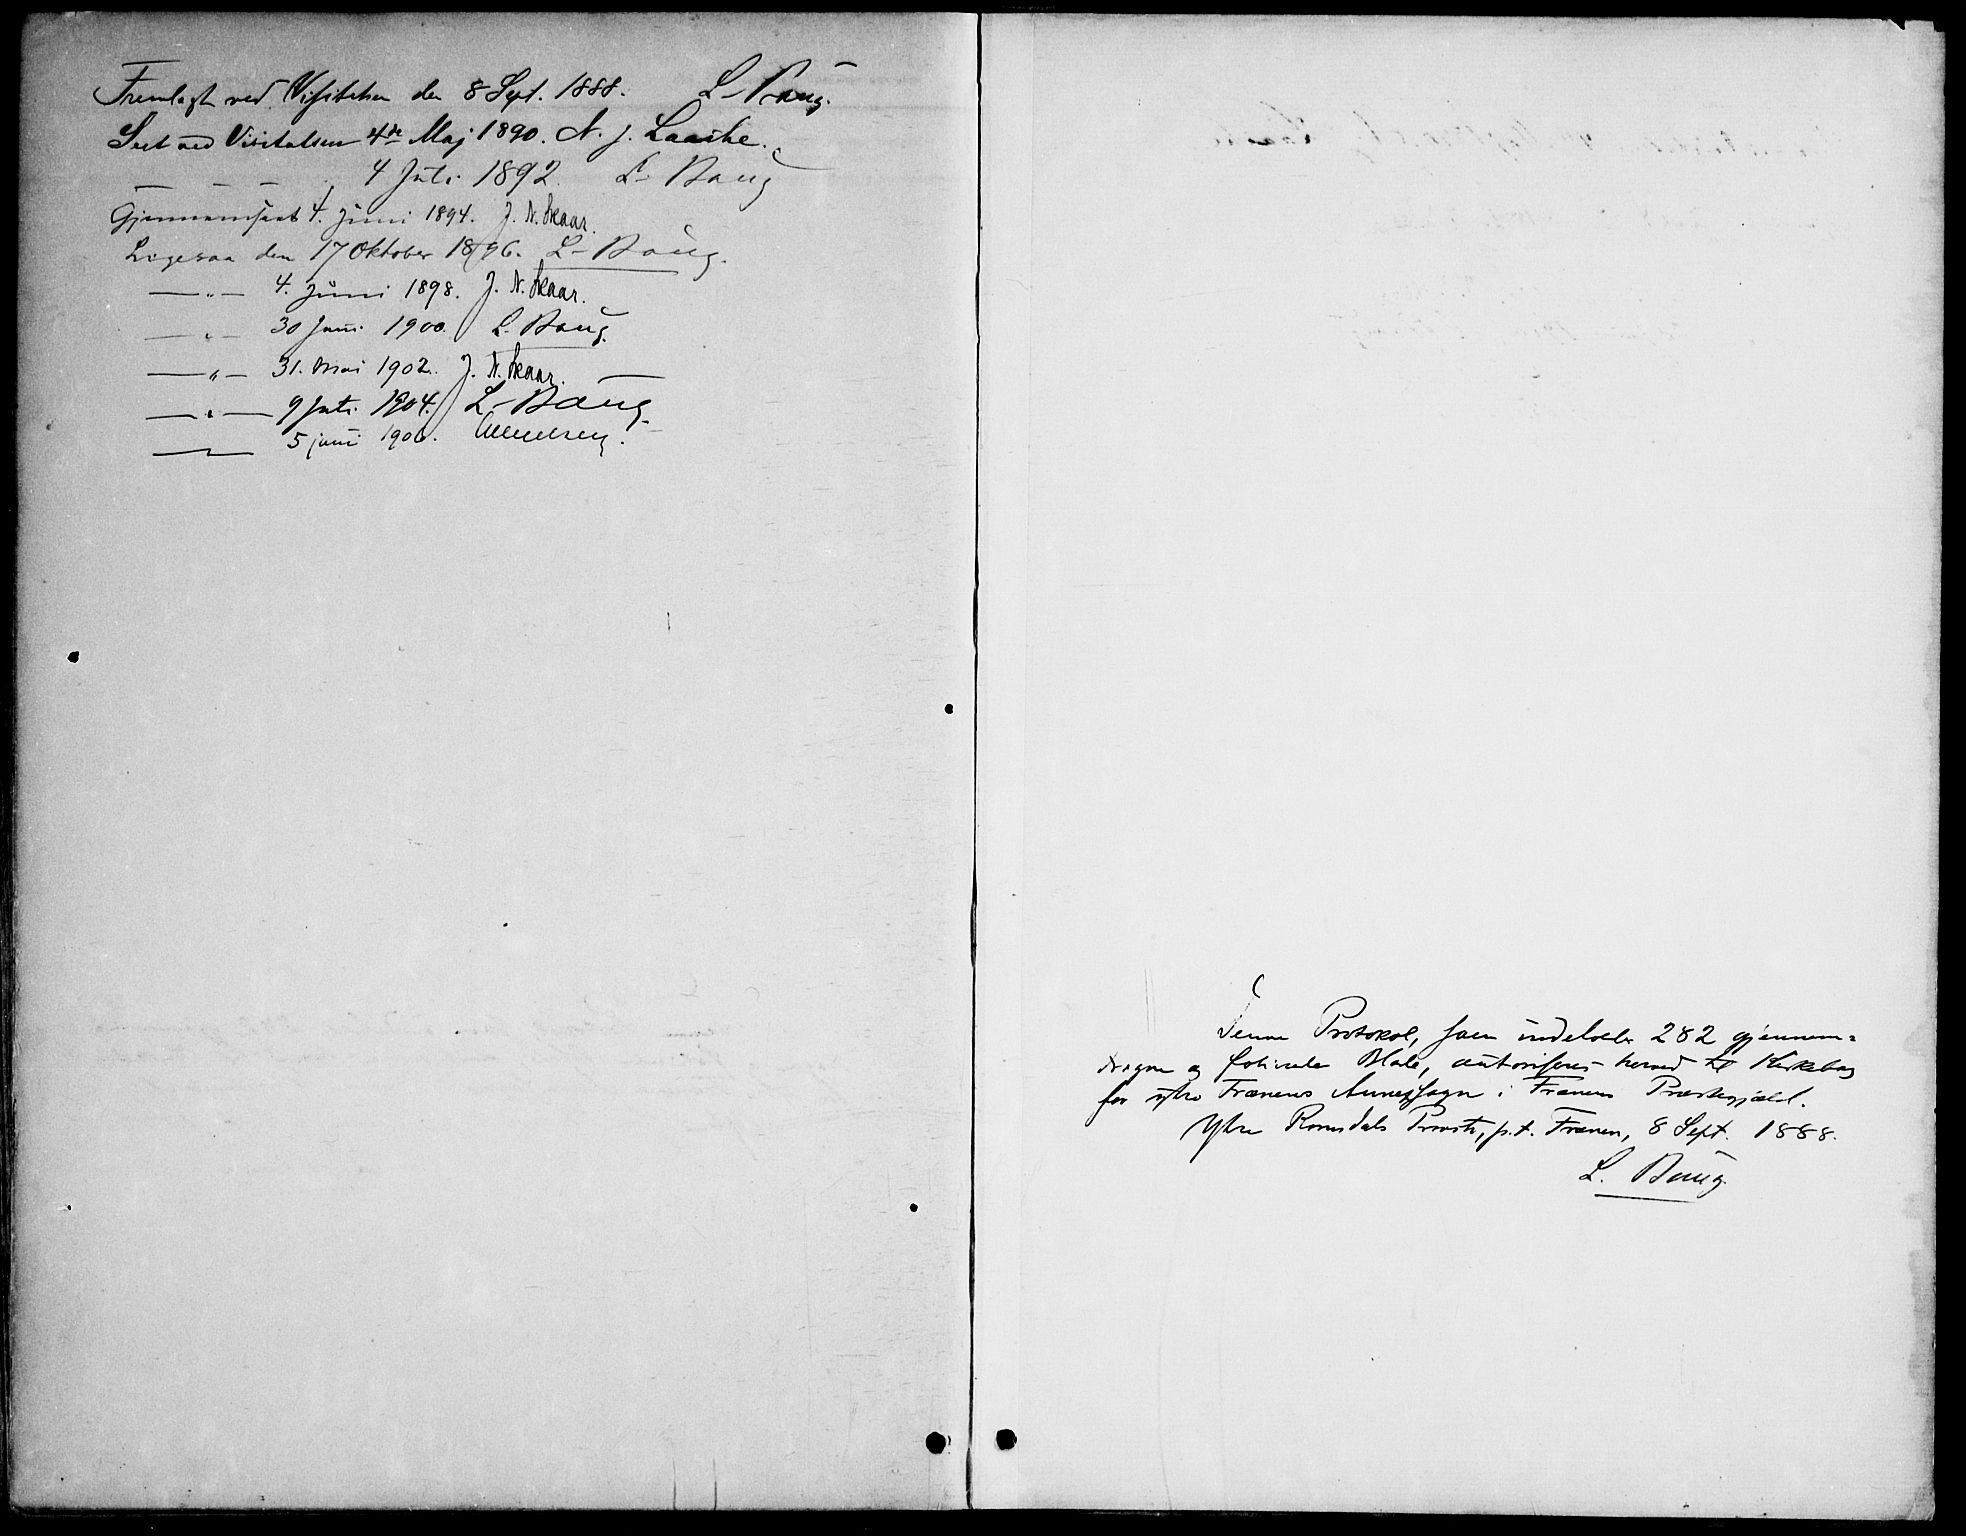 Fremlagt ved Visitatsen den 8 Sept. 1888. L. Baug.
Seet ved Visitatsen 4de Maj 1890. N. J. Laache.
— — — 4 Juli 1892. L. Baug
Gjennemseet 4. Juni 1894. J. N. Skaar.
Ligesaa den 17 Oktober 1896. L. Baug.
—„— 4. Juni 1898. J. N. Skaar.
—„— 30 Juni 1900. L. Baug.
—„— 31. Mai 1902. J. N. Skaar.
—„— 9 Juli 1904. L. Baug.
—„— 5 juni 1906.
Denne Protokol, som indeholder 282 gjennem=
dragne og folierede Blade, autoriseres herved til Kirkebog
for ytre Frænens Annexsogn i Frænens Præstegjæld.
Ytre Romsdals Provsti, p.t. Frænen, 8 Sept. 1888.
L. Baug